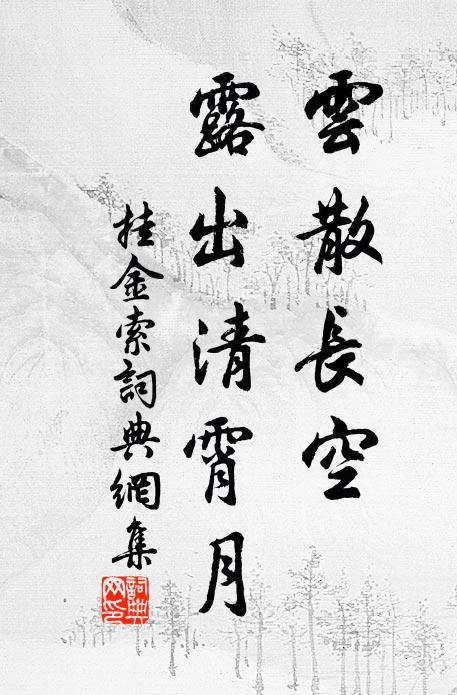 雲散長空
露出清霄月
挂金索詞典網集
詞典